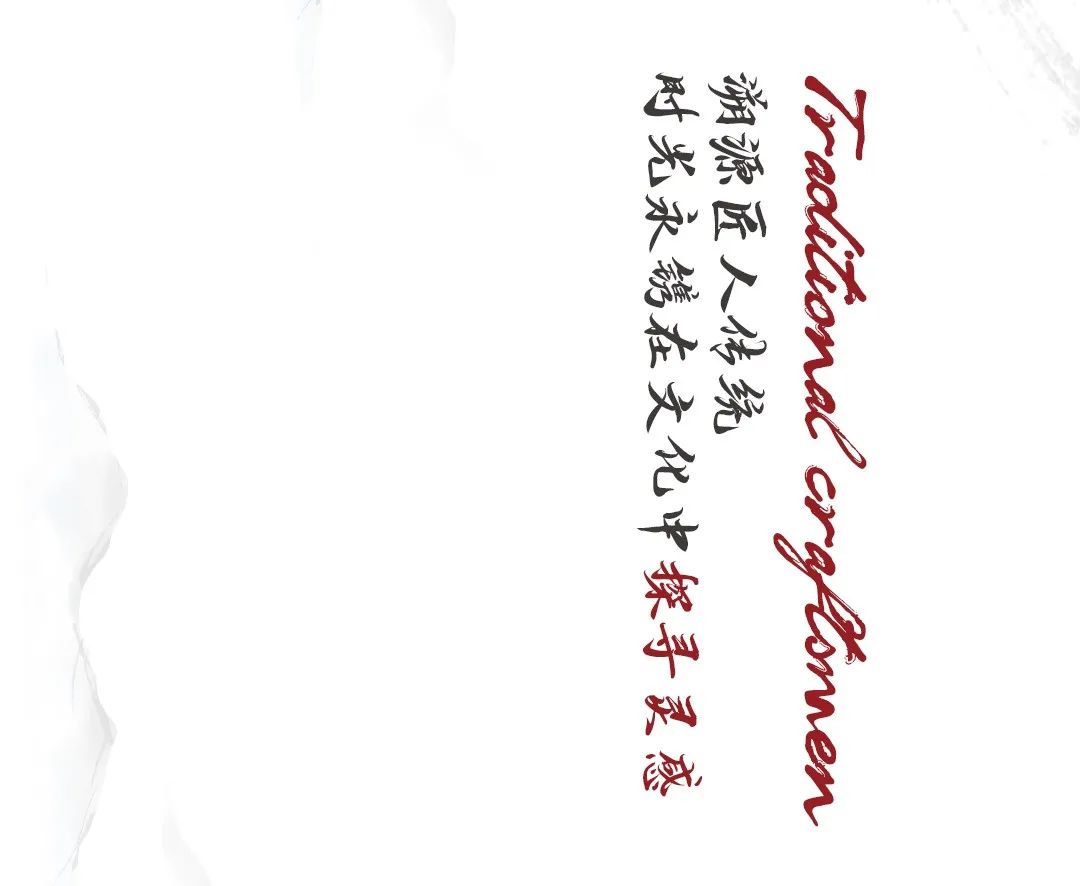 Traditional craftsmen
溯源匠人传统
时光永镌在文化中探寻灵感